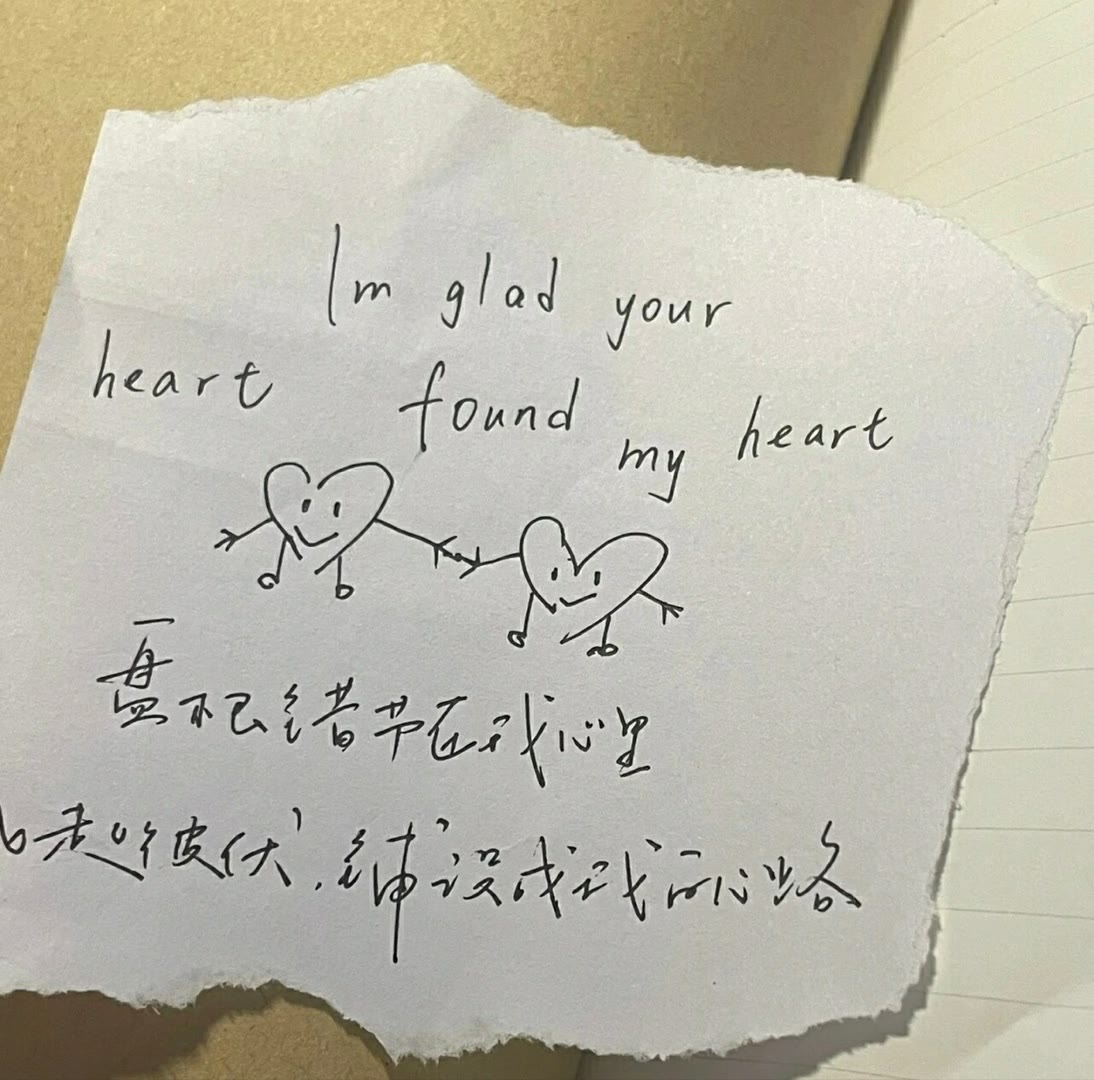 Im glad your
heart found my heart
盘根错节在我心里
起彼伏，铺设成我而心路